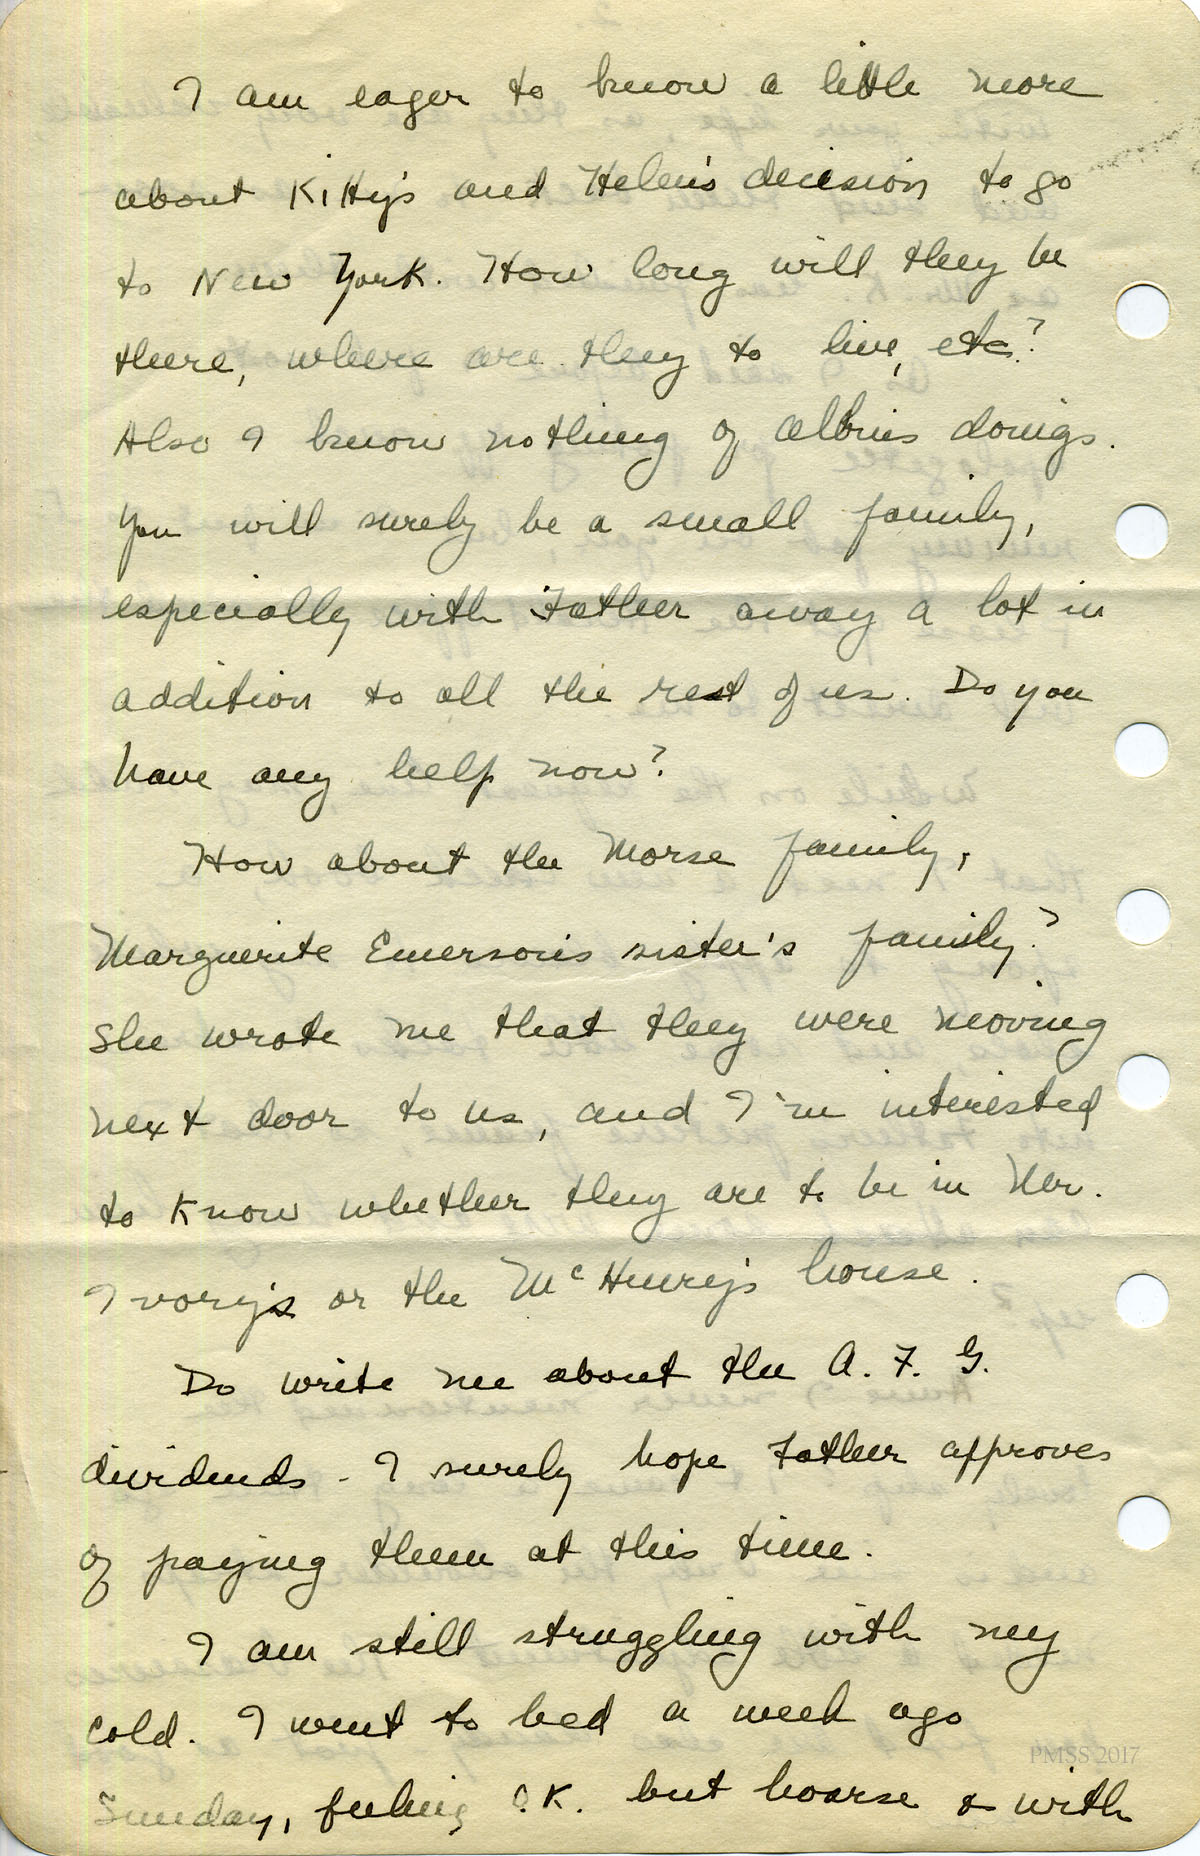 I am eager to know a little more
about Kitty's and Helen's decision to go
to New York. How long will they be
there, where are they to live, etc?
Also I know nothing of Albin's doings.
You will surely be a small family,
especially with Father away a lot in
addition to all the rest of us. Do you
have any help now?
How about the Morse family,
Marguerite Emerson's sister's family?
She wrote me that they were moving
next door to us, and I'm interested
to know whether they are to be in Mr.
Ivory's or the McHenry's house.
Do write me about the A. F. G.
dividends - I surely hope Father approves
of paying them at this time.
I am still struggling with my
cold. I went to bed a week ago
Sunday, feeling O.K. but hoarse & with
PMSS 2017